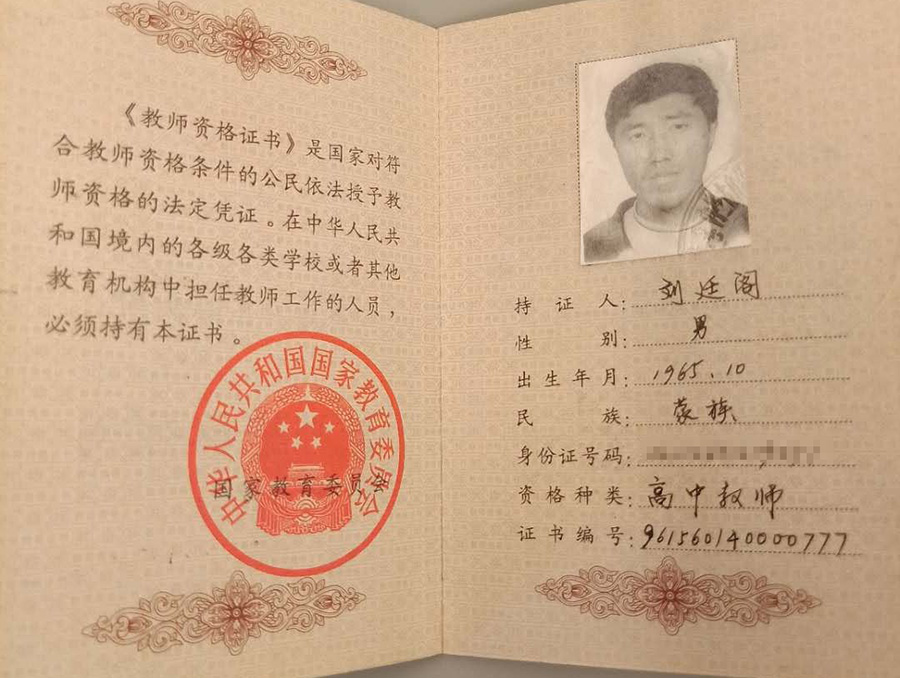 《教师资格证书》是国家对符
合教师资格条件的公民依法授予教
师资格的法定凭证。在中华人民共
和国境内的各级各类学校或者其他
教育机构中担任教师工作的人员，
必须持有本证书。
中华人民共和国国家教育委员会
国家教育委员会
持证人：刘廷阁
性别：男
出生年月：1965.10
民族：蒙族
身份证号码：
资格种类：高中教师
证书编号：961560140000777